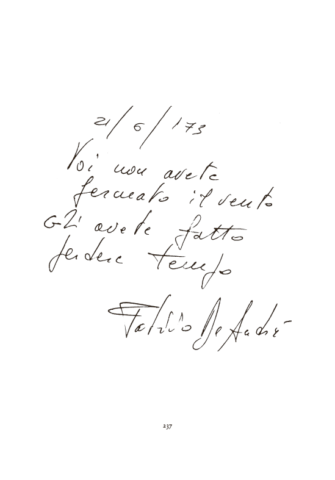 21/6/173
Voi non avete
fermato il vento
Gli avete fatto
perdere tempo
Fabrizio De André
237